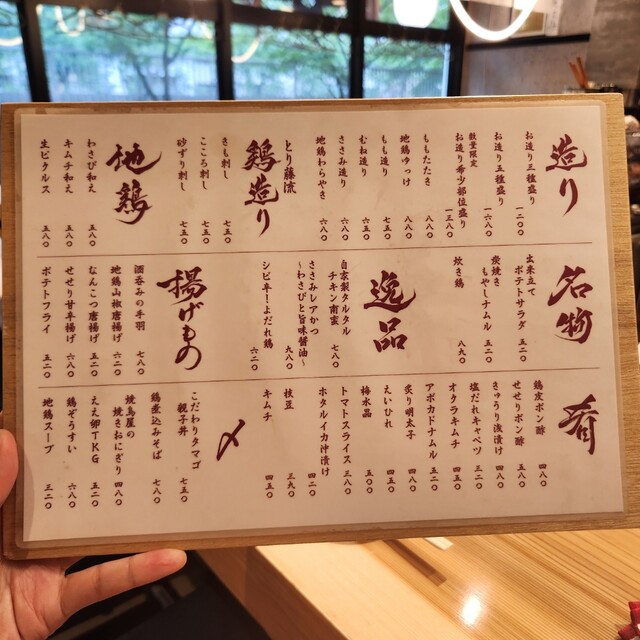 造り
お造り三種盛り 一二〇〇
お造り五種盛り 一六八〇
数量限定
お造り希少部位盛り 一三八〇
ももたたき 八八〇
地鶏ゆっけ 八八〇
もも造り 七五〇
むね造り 六五〇
ささみ造り 六八〇
地鶏わらやき 六八〇
とり藤流
鶏造り
きも刺し 七五〇
こころ刺し 七五〇
砂ずり刺し 七五〇
地鶏
わさび和え 五八〇
キムチ和え 五八〇
生ピータルス 五八〇
名物
出来立て
ポテトサラダ 五二〇
炭焼き
もやしナムル 五二〇
炊き鶏 八九〇
逸品
自家製タルタル
チキン南蛮 七八〇
ささみレアかつ
〜わさびと旨味醤油〜 九八〇
シビ辛！よだれ鶏 六二〇
揚げもの
酒呑みの手羽 七八〇
地鶏山椒唐揚げ 六二〇
なんこつ唐揚げ 五二〇
せせり甘辛揚げ 六八〇
ポテトフライ 五二〇
肴
鶏皮ポン酢 四八〇
せせりポン酢 五八〇
きゅうり浅漬け 四八〇
塩だれキャベツ 三二〇
オクラキムチ 四五〇
アボカドナムル 五二〇
炙り明太子 四八〇
えいひれ 四五〇
梅水晶 五〇〇
トマトスライス 三八〇
ホタルイカ沖漬け 四二〇
枝豆 三九〇
キムチ 四五〇
〆
こだわりタマゴ
親子丼 七五〇
鶏煮込みそば 七八〇
焼鳥屋の
焼きおにぎり 四八〇
ええ卵TKG 五二〇
鶏ぞうすい 六八〇
地鶏スープ 三二〇